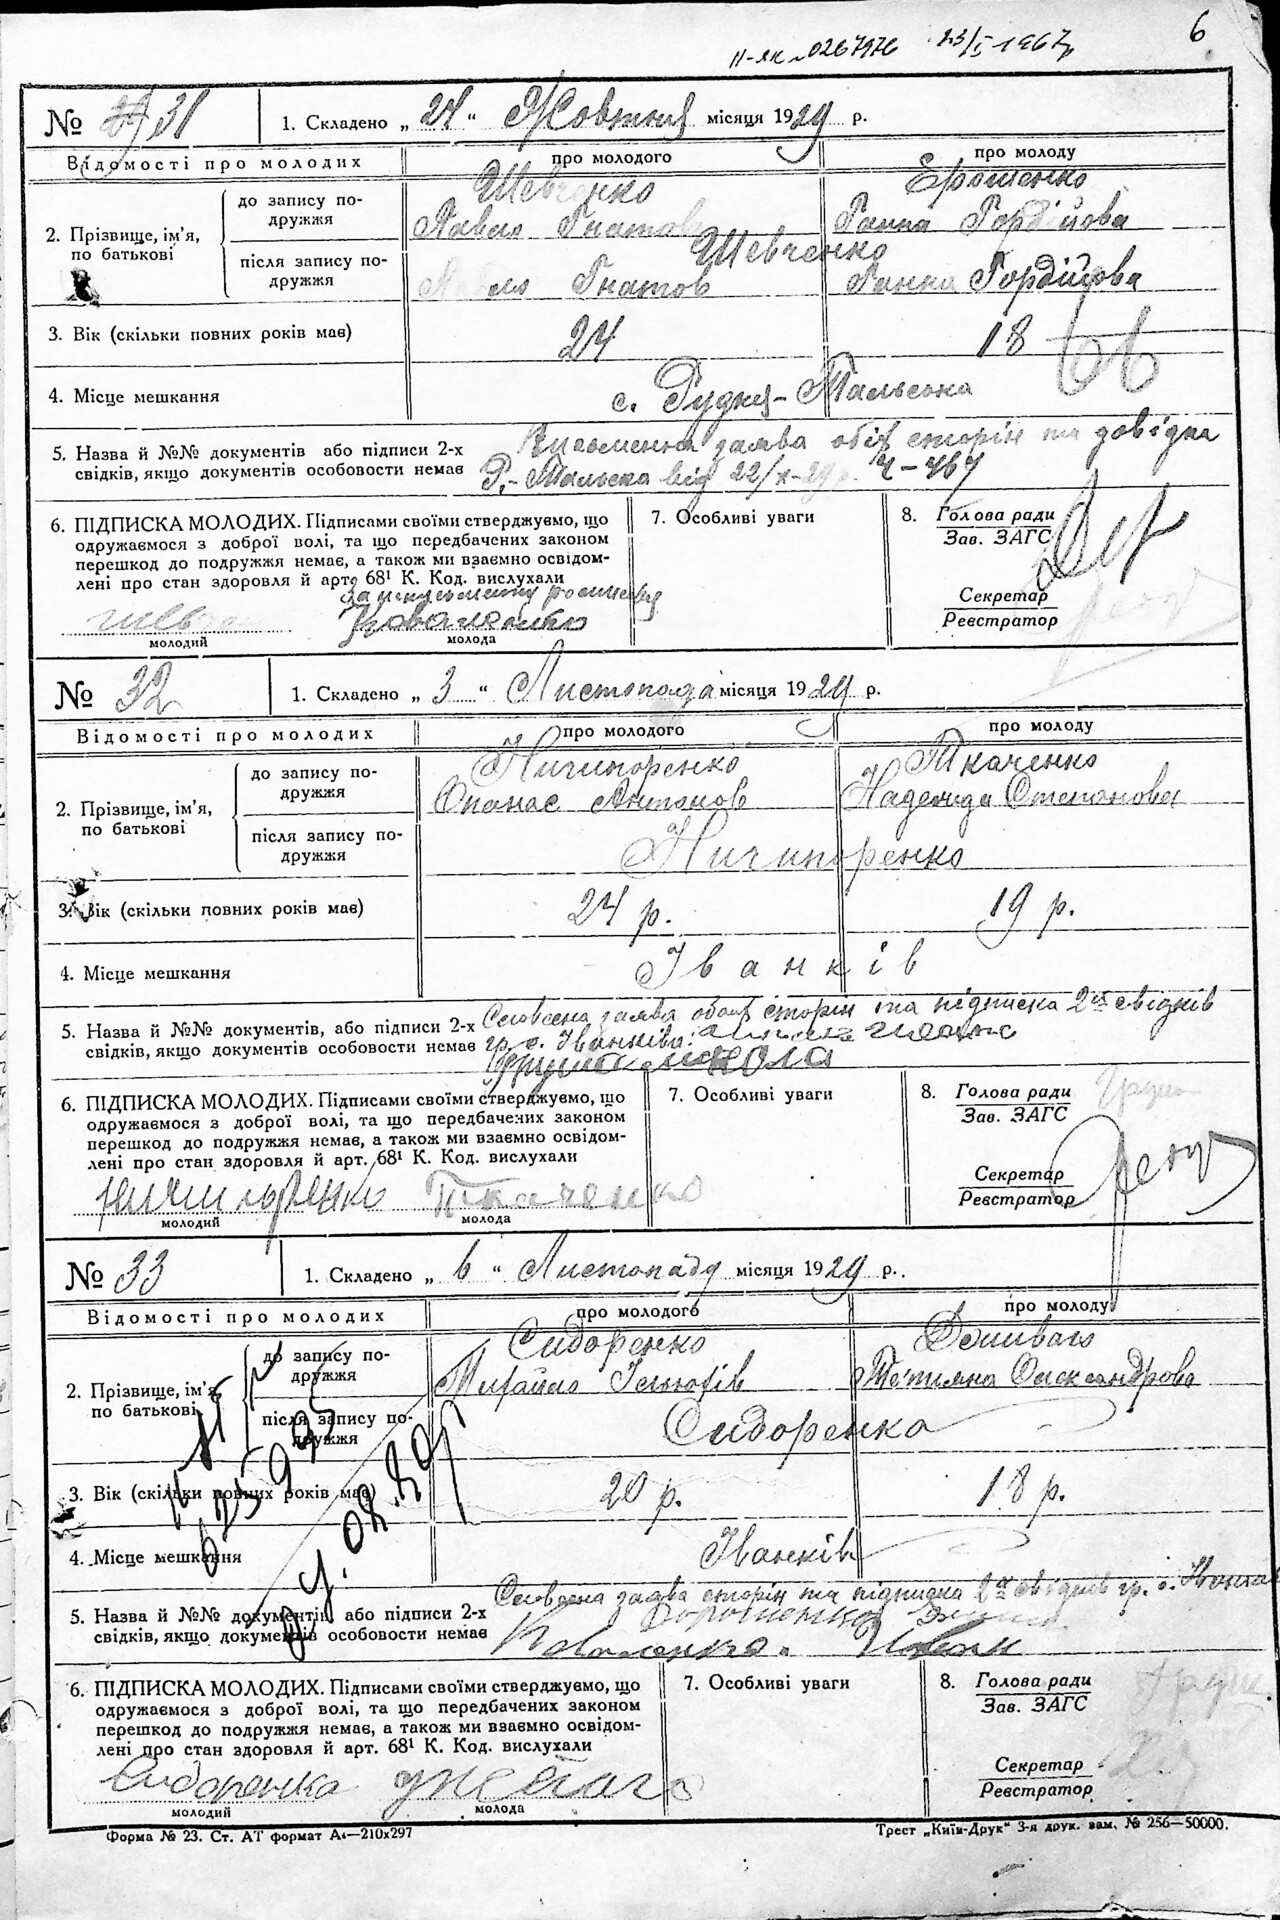 6
23/I 1967р
№ 31
1. Складено „ 24 “ Жовтня місяця 1929 р.
Відомості про молодих
про молодого
про молоду
2. Прізвище, ім'я, по батькові
до запису подружжя
Шевченко
Павло Гнатов
Єрошенко
Ганна Гордійова
після запису подружжя
Шевченко
Павло Гнатов
Ганна Гордійова
3. Вік (скільки повних років має)
24
18
4. Місце мешкання
с. Рудня-Тальська
5. Назва й №№ документів або підписи 2-х
свідків, якщо документів особовости немає
Письменна заява обіх сторін та довідка
Р.-Тальска від 22/х-29р. Ч-467
6. ПІДПИСКА МОЛОДИХ. Підписами своїми стверджуємо, що
одружаємося з доброї волі, та що передбачених законом
перешкод до подружжя немає, а також ми взаємно освідом-
лені про стан здоровля й арт. 68¹ К. Код. вислухали
молодий
молода
7. Особливі уваги
8. Голова ради
Зав. ЗАГС
Секретар
Реєстратор
№ 32
1. Складено „ 3 “ Листопада місяця 1929 р.
Відомості про молодих
про молодого
про молоду
2. Прізвище, ім'я, по батькові
до запису подружжя
Ничипоренко
Опанас Антонов
Ткаченко
Надежда Степанова
після запису подружжя
Ничипоренко
3. Вік (скільки повних років має)
24 р.
19 р.
4. Місце мешкання
Іванків
5. Назва й №№ документів, або підписи 2-х
свідків, якщо документів особовости немає
Словесна заява обоїх сторін та підписка 2ох свідків
гр. с. Іванківа:
6. ПІДПИСКА МОЛОДИХ. Підписами своїми стверджуємо, що
одружаємося з доброї волі, та що передбачених законом
перешкод до подружжя немає, а також ми взаємно освідом-
лені про стан здоровля й арт. 68¹ К. Код. вислухали
Ткаченко
молодий
молода
7. Особливі уваги
8. Голова ради
Зав. ЗАГС
Секретар
Реєстратор
№ 33
1. Складено „ 6 “ Листопаду місяця 1929 р.
Відомості про молодих
про молодого
про молоду
2. Прізвище, ім'я, по батькові
до запису подружжя
Сидоренко
Михайло
Тетяна Олександрова
після запису подружжя
Сидоренка
3. Вік (скільки повних років має)
20 р.
18 р.
4. Місце мешкання
Іванків
5. Назва й №№ документів або підписи 2-х
свідків, якщо документів особовости немає
Словесна заява сторін та підписка 2х свідків гр. с.
Коваленко Иван
6. ПІДПИСКА МОЛОДИХ. Підписами своїми стверджуємо, що
одружаємося з доброї волі, та що передбачених законом
перешкод до подружжя немає, а також ми взаємно освідом-
лені про стан здоровля й арт. 68¹ К. Код. вислухали
Сидоренка
молодий
молода
7. Особливі уваги
8. Голова ради
Зав. ЗАГС
Секретар
Реєстратор
Форма № 23. Ст. АТ формат А₄—210х297
Трест „Київ-Друк“ 3-я друк. зам. № 256—50000.